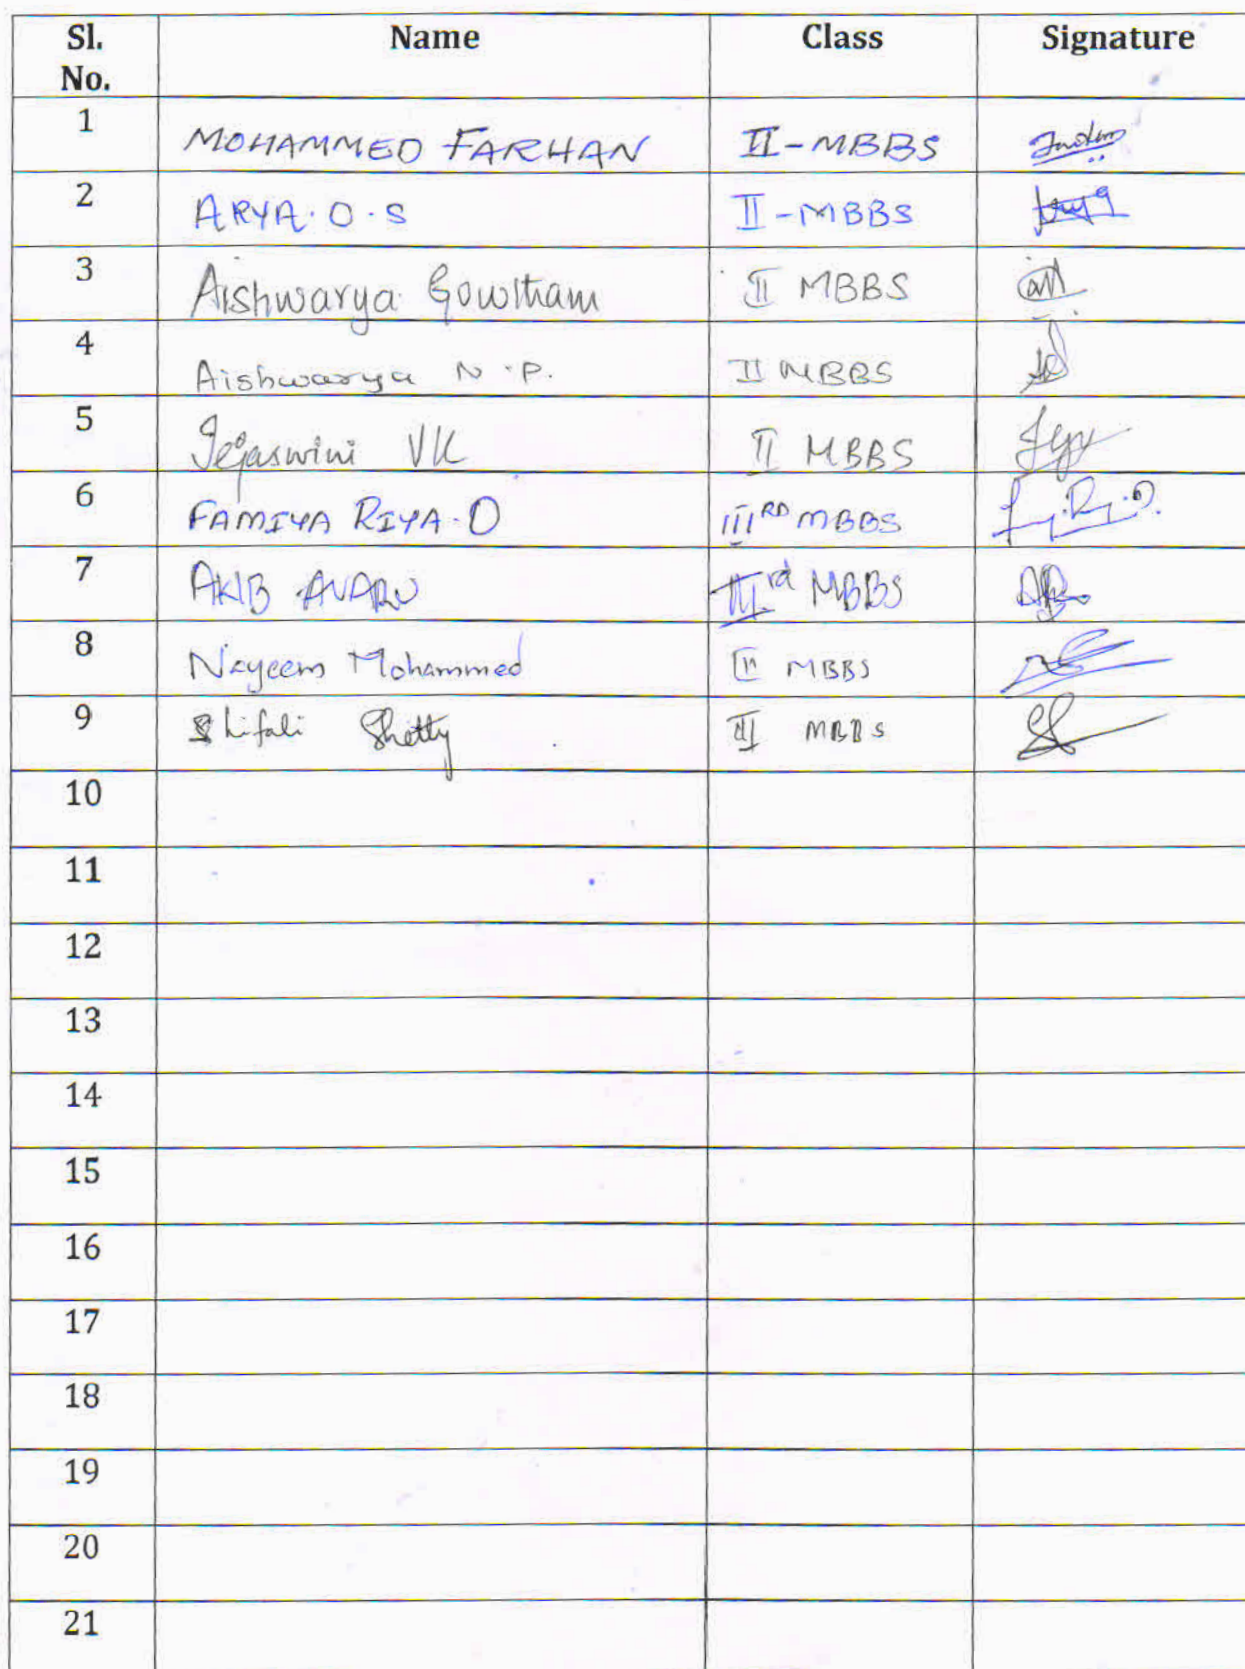 Sl. No. Name Class Signature
1 MOHAMMED FARHAN II-MBBS
2 ARYA.O.S II-MBBS
3 Aishwarya Gowtham II MBBS
4 Aishwarya N.P. II MBBS
5 Tejaswini VK II MBBS
6 FAMIYA RIYA.D IIIRD MBBS
7 AKIB AVARU IIIrd MBBS
8 Nayeem Mohammed MBBS
9 Shifali Shetty MBBS
10
11
12
13
14
15
16
17
18
19
20
21